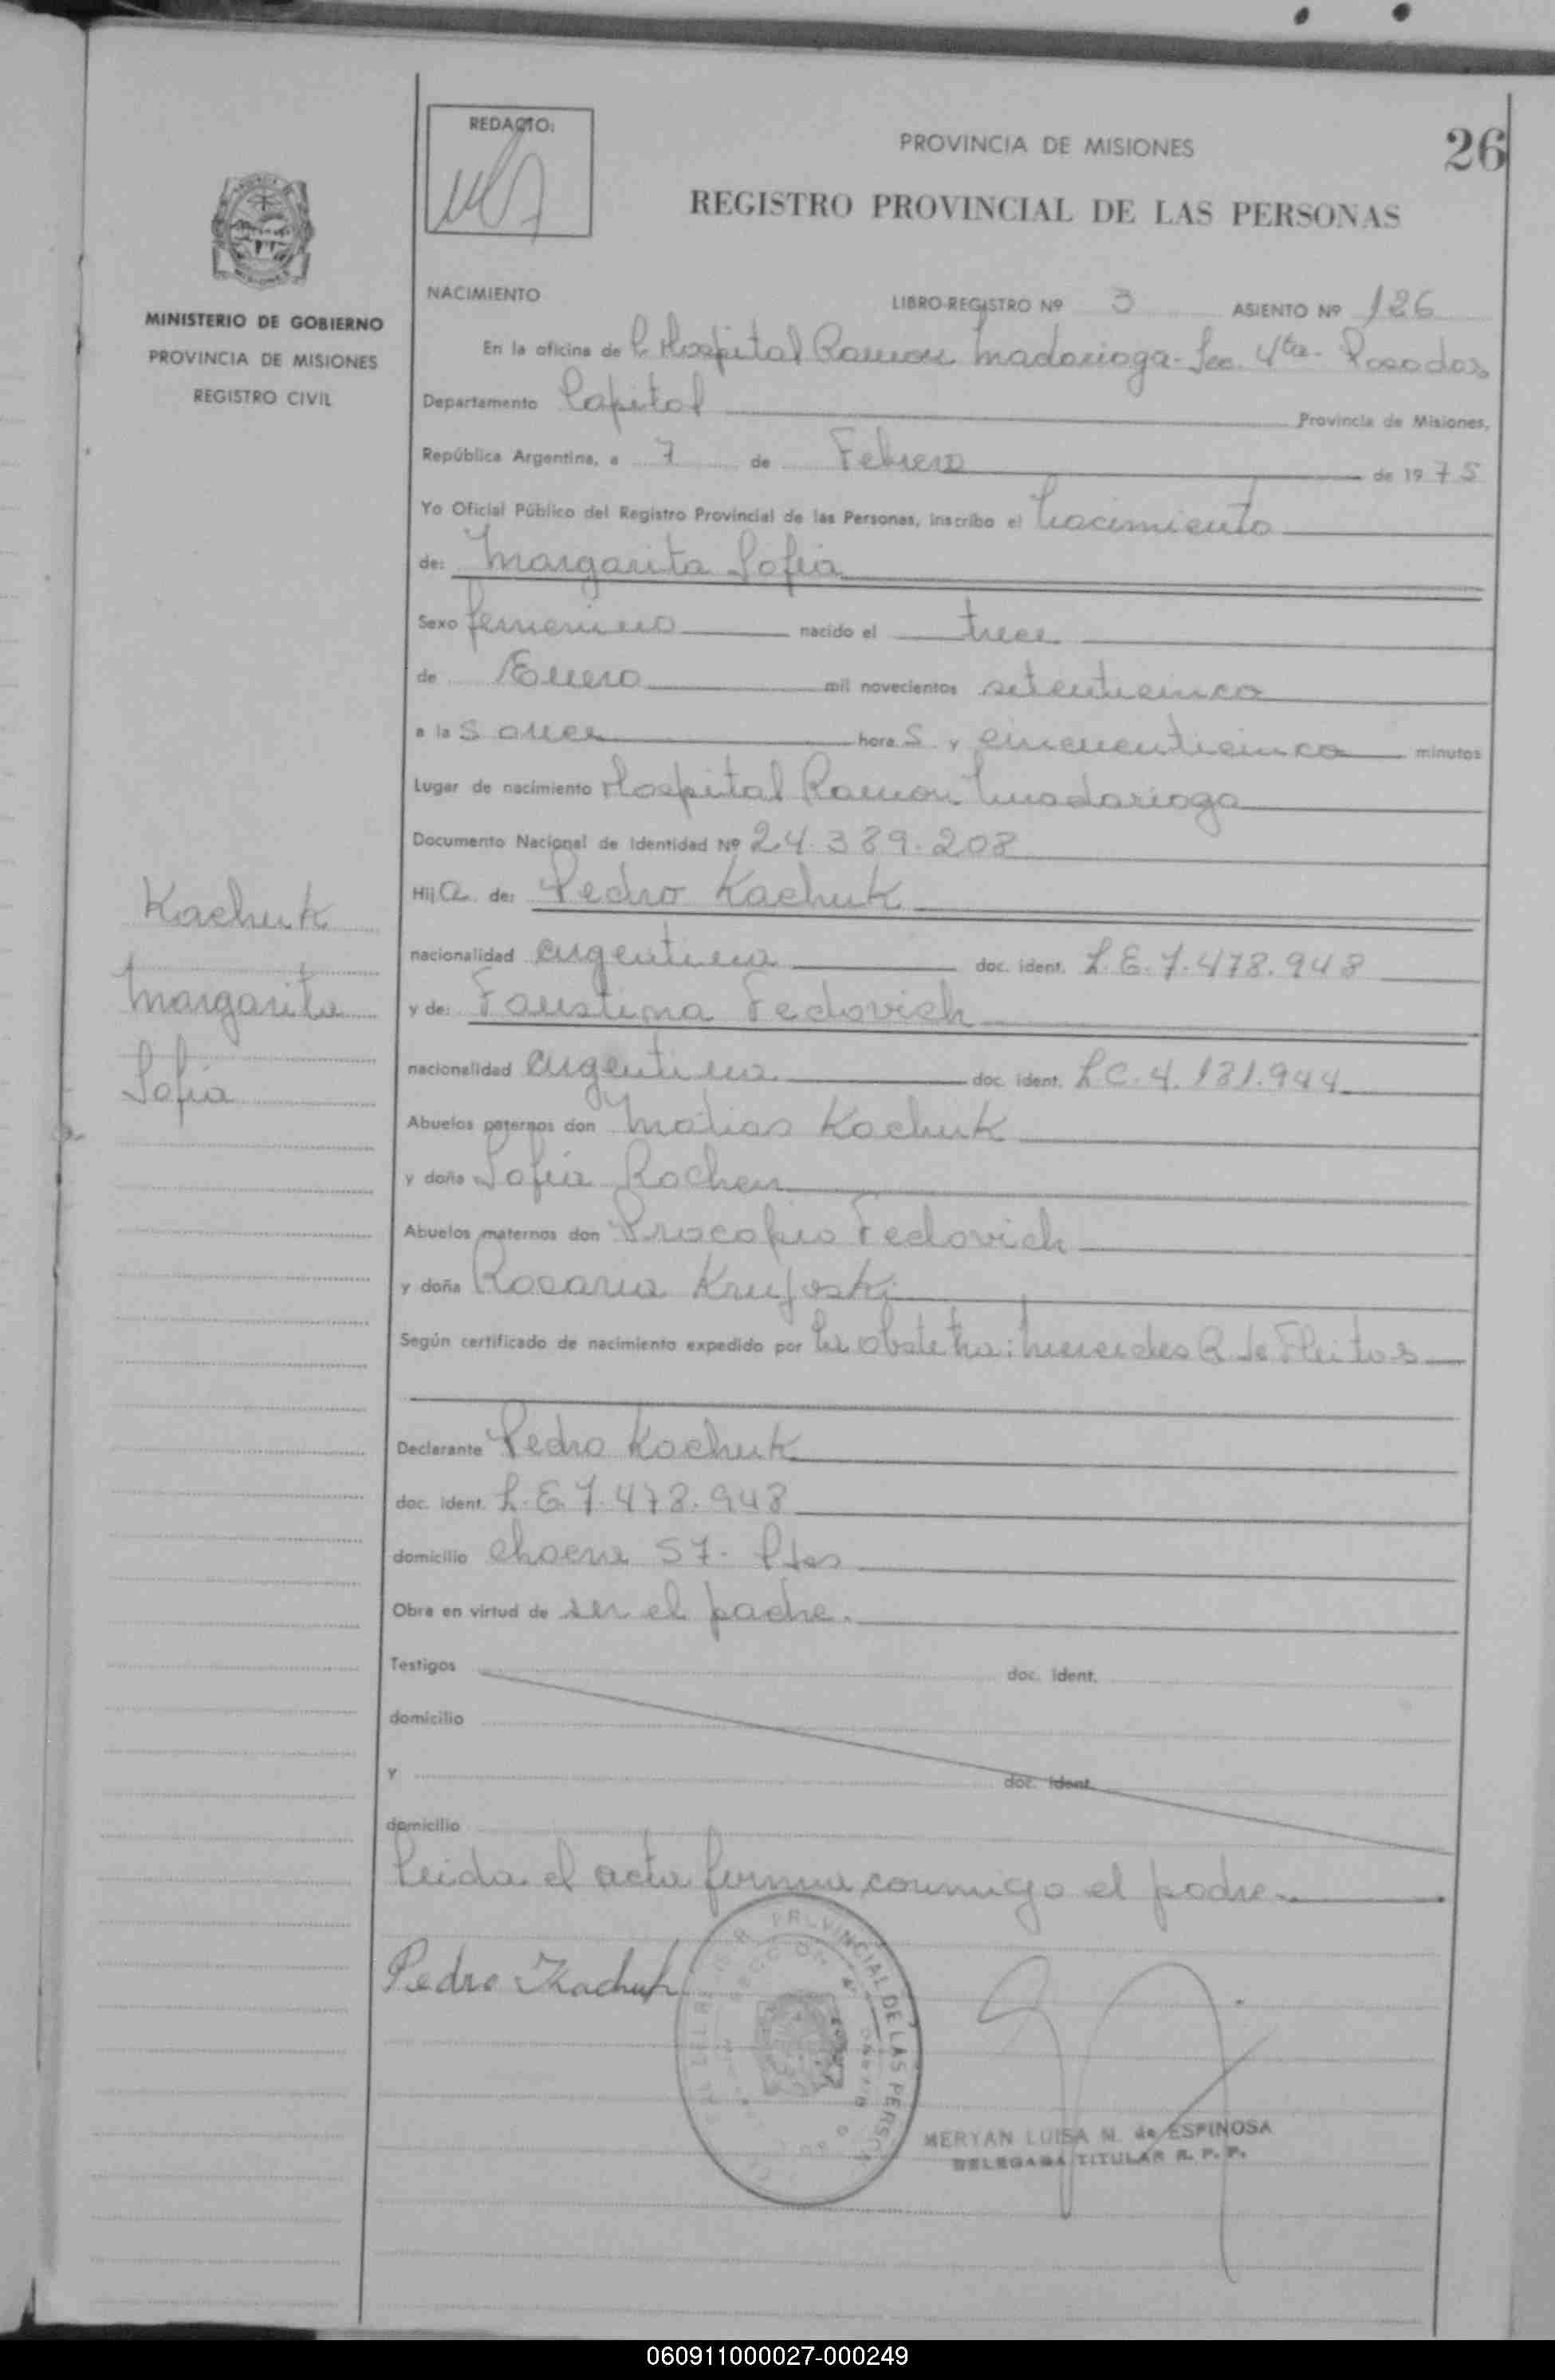 REDACTO:
PROVINCIA DE MISIONES
26
REGISTRO PROVINCIAL DE LAS PERSONAS
MINISTERIO DE GOBIERNO
PROVINCIA DE MISIONES
REGISTRO CIVIL
NACIMIENTO
LIBRO-REGISTRO Nº 3 ASIENTO Nº 126
En la oficina de Hospital Ramon Madariaga - Sec. 4ta - Posadas
Departamento Capital Provincia de Misiones,
República Argentina, a 7 de Febrero de 1975
Yo Oficial Público del Registro Provincial de las Personas, inscribo el Nacimiento
de: Margarita Sofia
Sexo femenino nacido el trece
de Enero mil novecientos setenticinco
a las once horas y cincuenticinco minutos
Lugar de nacimiento Hospital Ramon Madariaga
Documento Nacional de Identidad Nº 24.389.208
Hija de: Pedro Kachuk
nacionalidad argentina doc. ident. L.E. 7.478.948
y de: Faustina Fedovich
nacionalidad argentina doc. ident. L.C. 4.181.944
Abuelos paternos don Matias Kachuk
y doña Sofia Rochen
Abuelos maternos don Procopio Fedovich
y doña Rosaria
Según certificado de nacimiento expedido por la obstetra: Mercedes R. de Fleitas
Declarante Pedro Kachuk
doc. ident. L.E. 7.478.948
domicilio 57 - Pdas
Obra en virtud de ser el padre.
Testigos doc. ident.
domicilio
y doc. ident.
domicilio
Leida el acta firma conmigo el padre.
Kachuk
Margarita
Sofia
Pedro Kachuk
PROVINCIAL DE LAS PERSO
MERYAN LUISA M. de ESPINOSA
DELEGADA TITULAR R. P. P.
060911000027-000249